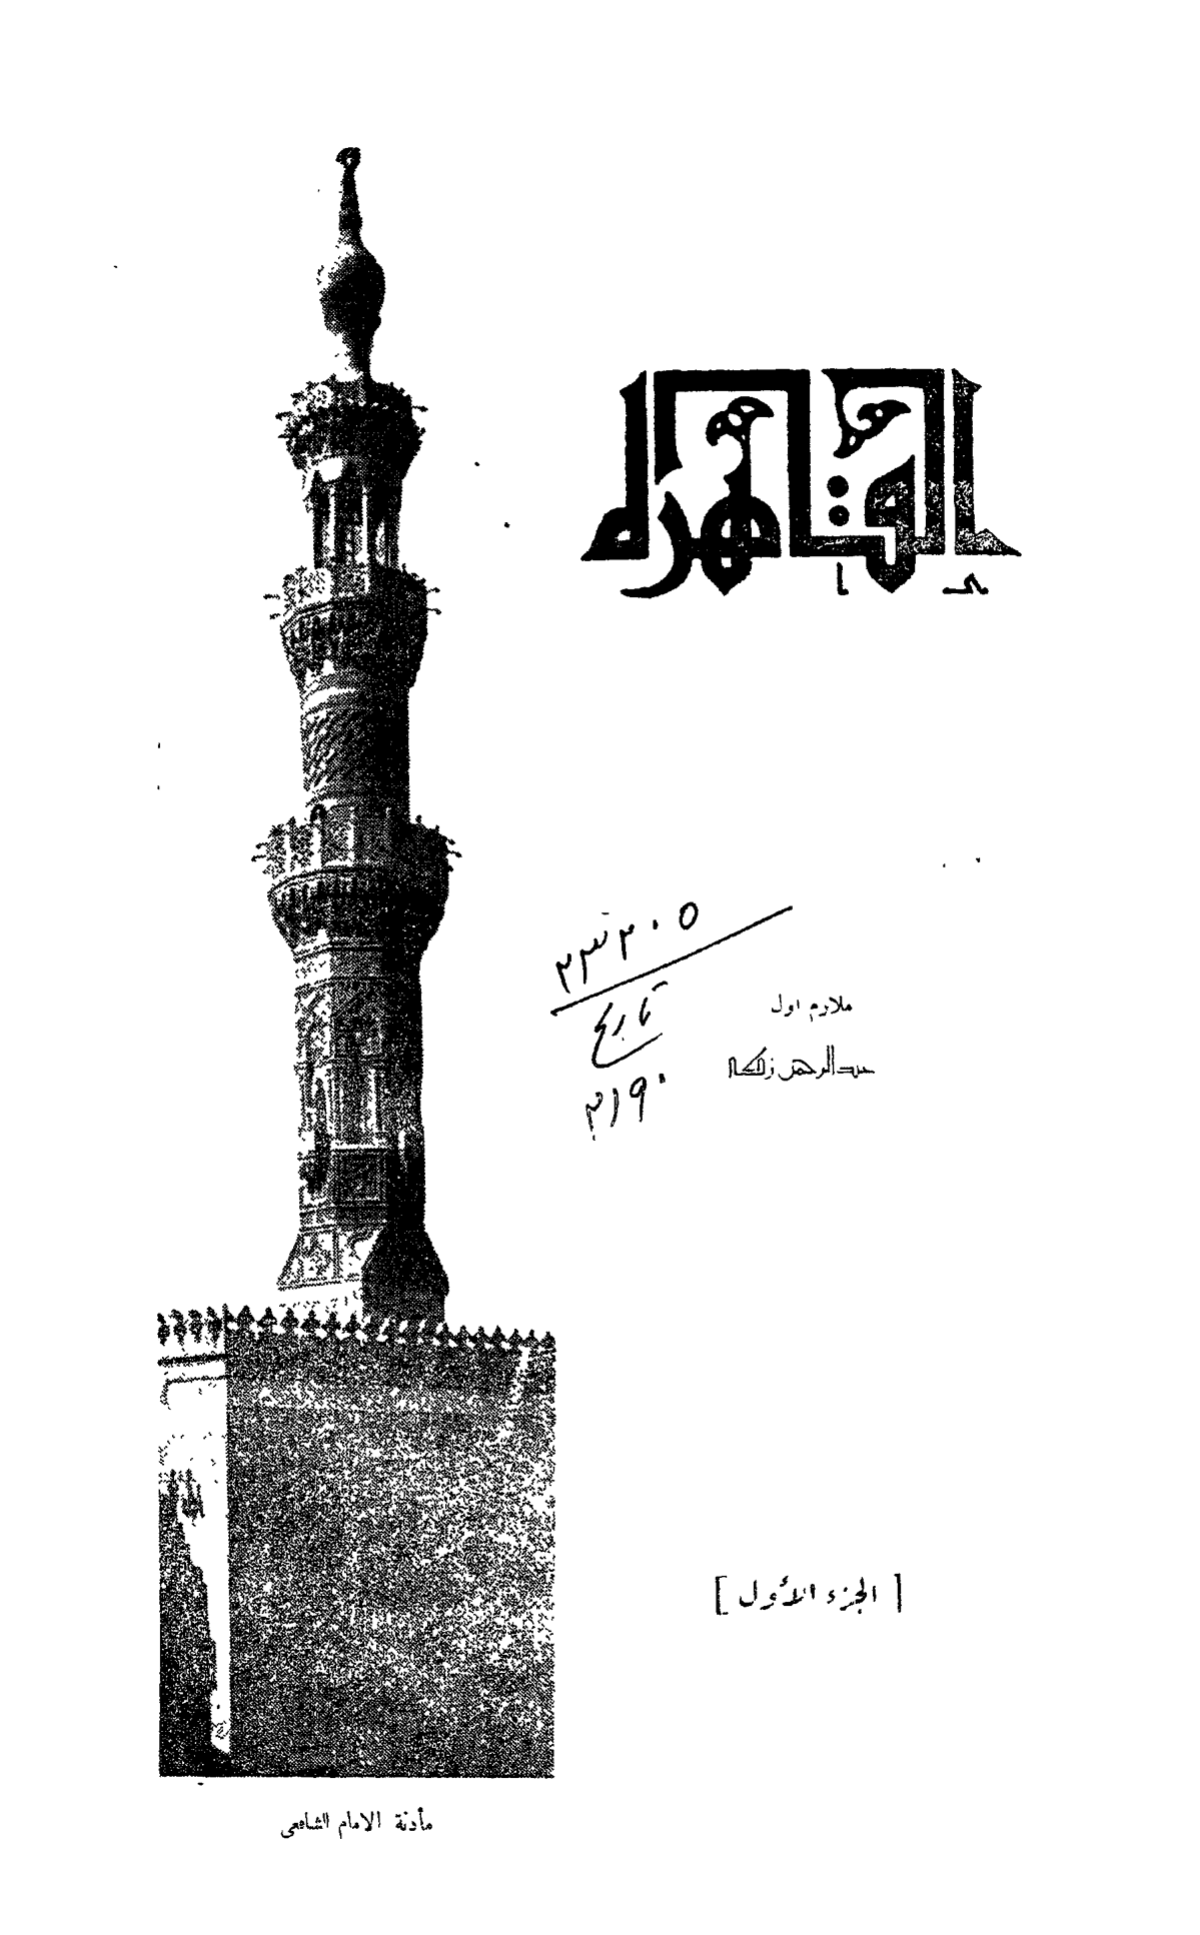 القاهرة
٢٣٢٠٥
تاريخ
٢١٩٠
ملازم اول
عبد الرحمن زكى
[ الجزء الأول ]
مأذنة الامام الشافعى